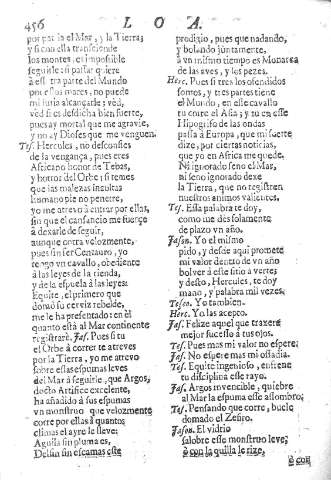 456 LOA.
por paſſa el Mar, y la Tierra;
y ſi con ella tranſciende
los montes, es impoſsible
ſeguirle: ſi paſſar quiere
à eſſ tra parte del Mundo
por eſſos mares, no puede
mi furia alcançarle; vèd,
vèd ſi es deſdicha bien fuerte,
pues ay mortal que me agravie,
y no ay Dioſes que me venguen.
Teſ. Hercules, no deſconfies
de la vengança, pues eres
Africano honor de Tebas,
y horror del Orbe; ſi temes
que las malezas incultas
humano pie no penetre,
yo me atrevo à entrar por ellas,
ſin que el canſancio me fuerçe
à dexarle de ſeguir,
aunque corra velozmente,
pues ſin ſer Centauro, yo
tengo vn cavallo, obediente
à las leyes de la rienda,
y de la eſpuela à las leyes:
Equite, el primero que
domò ſu cerviz rebelde,
me le ha preſentado: en èl
quanto eſtà al Mar continente
regiſtrarè. Jaſ. Pues ſi tu
el Orbe à correr te atreves
por la Tierra, yo me atrevo
ſobre eſſas eſpumas leves
del Mar à ſeguirle, que Argos,
docto Artifice excelente,
ha añadido à ſus eſpumas
vn monſtruo que velozmente
corre por ellas à quantos
climas el ayre le lleve;
Aguila ſin pluma es,
Delfin ſin eſcamas eſte
prodigio, pues que nadando,
y bolando juntamente,
à vn miſmo tiempo es Monarca
de las aves, y los pezes.
Herc. Pues ſi tres los ofendidos
ſomos, y tres partes tiene
el Mundo, en eſſe cavallo
tu corre el Aſia; y tu en eſſe
Hipogrifo de las ondas
paſſa à Europa, que mi ſuerte
dize, por ciertas noticias,
que yo en Africa me quede.
Ni ignorado ſeno el Mar,
ni ſeno ignorado dexe
la Tierra, que no regiſtren
nueſtros animos valientes.
Teſ. Eſſa palabra te doy,
como me dès ſolamente
de plazo vn año.
Jaſon. Yo el miſmo
pido, y deſde aqui promete
mi valor dentro de vn año
bolver à eſte ſitio à verte;
y deſto, Hercules, te doy
mano, y palabra mil vezes.
Teſeo. Yo tambien.
Herc. Yo las acepto.
Jaſ. Felize aquel que traxere
mejor ſuceſſo à tus ojos.
Teſ. Pues mas mi valor no eſpere;
Jaſ. No eſpere mas mi oſſadia.
Teſ. Equite ingenioſo, entiene
tu diſciplina eſſe rayo.
Jaſ. Argos invencible, quiebre
al Mar la eſpuma eſſe aſſombro;
Teſ. Penſando que corre, buele
domado el Zefiro.
Jaſon. El vidrio
ſalobre eſſe monſtruo leve;
ò con la quilla le rize,
ò con